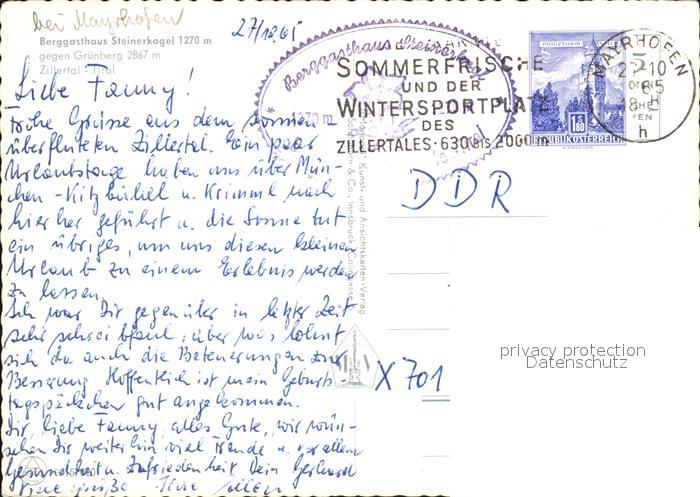 bei Mayrhofen
27/10.65
Berggasthaus Steinerkogel 1270 m
gegen Grünberg 2867 m
Zillertal - Tirol
Liebe Fanny!
Frohe Grüsse aus dem sonnen-
überfluteten Zillertal. Ein paar
Urlaubstage haben uns über Mün-
chen - Kitzbühel u. Krimml nach
hierher geführt u. die Sonne tut
ein übriges, um uns diesen kleinen
Urlaub zu einem Erlebnis werden
zu lassen.
Ich war Dir gegenüber in letzter Zeit
sehr schreibfaul; aber was lohnt
sich da auch die Beteuerungen zur
Besserung. Hoffentlich ist mein Geburts-
tagspäckchen gut angekommen.
Dir, liebe Fanny, alles Gute, wir wün-
schen Dir weiterhin viel Freude u. vor allem
Gesundheit u. Zufriedenheit. Dein Gerhard
Viele Grüße
Berggasthaus Steinerkogel
1270 m
SOMMERFRISCHE
UND DER
WINTERSPORTPLATZ
DES
ZILLERTALES · 630 BIS 2000 m
MÜNZTURM
1.80
REPUBLIK ÖSTERREICH
MAYRHOFEN
65
18 H
h
Kunst- und Ansichtskarten-Verlag
& Co., Innsbruck
DDR
X 701
privacy protection
Datenschutz